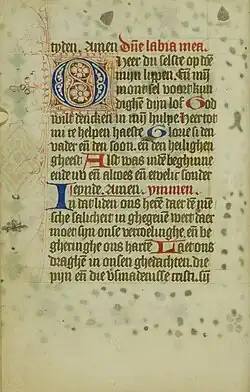 tyden. Amen. Dn̄e labia mea.
Heer du selste op dē
mijn lippen. En̄ mijn
mont sel voert kun
dighē dijn lof. God
wilt dencken in mijn hulpe heer tot
mi te helpen haeste Glorie si den
vader en̄ den soon. en̄ den heilighen
gheest Alst was indē beghinne
ende nv en̄ altoes en̄ ewelic sonder
eynde. Amen. ymmen.
In dat liden ons herē daer
sche salicheit in ghegeuē wert daer
moet syn onse veroeinghe. en̄ be
gheringhe ons hartē Laet ons
draghē in onsen ghedachten. die
pijn en̄ die vsmadenisse cristi. sij